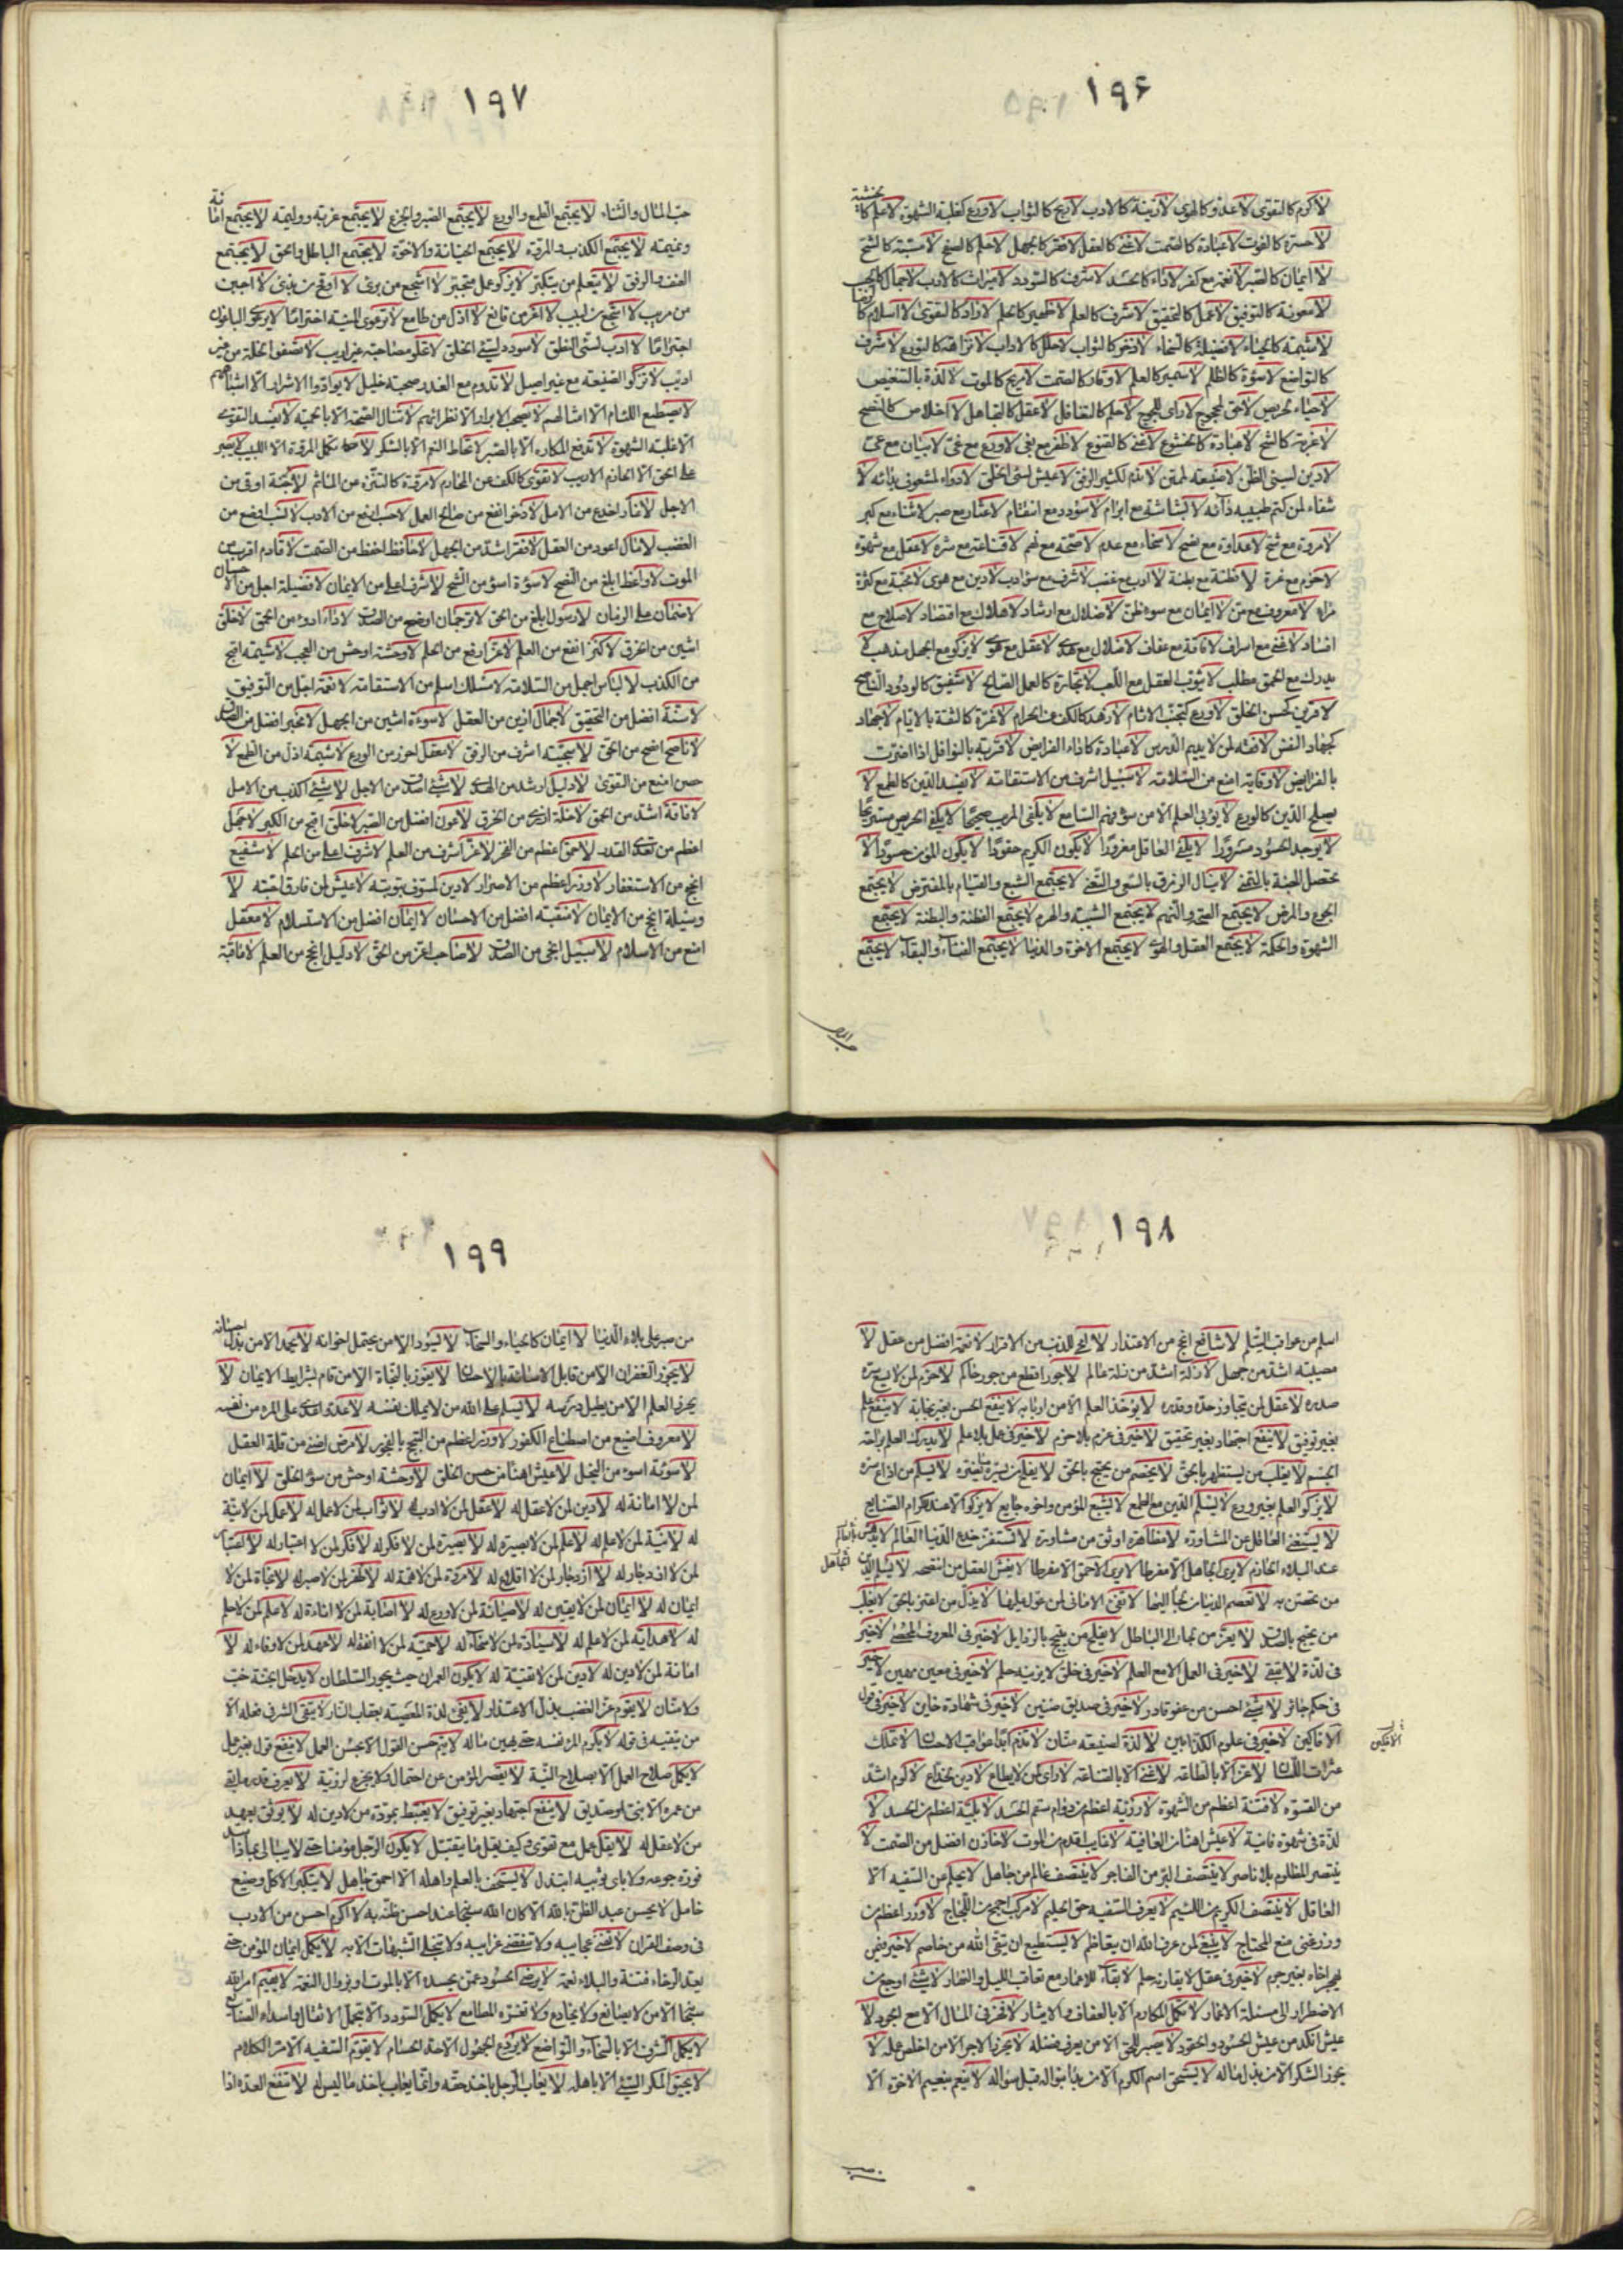 ۱۹۶
لا كرم كالتقوى لا عدو كالهوى لا زينة كالادب لا ربح كالثواب لا ورع كغلبة الشهوة لا علم كا
لخشية
لا حسرة كالفوت لا عبادة كالصمت لا غنى كالعقل لا فقر كالجهل لا حلم كالصفح لا مسبة كالشح
لا ايمان كالصبر لا نعمة مع كفر لا داء كالحسد لا شرف كالسودد لا ميراث كالادب لا جمال كالحسب
لا معونة كالتوفيق لا عمل كالتحقيق لا شرف كالعلم لا ظهير كالحلم لا زاد كالتقوى لا اسلام كا
لرضا
لا شيمة كالحياء لا فضيلة كالسخاء لا ذخر كالثواب لا حلل كالاداب لا نزاهة كالتورع لا شرف
كالتواضع لا سوءة كالظلم لا سمير كالعلم لا وقار كالصمت لا مريح كالموت لا لذة بالتنغيص
لا حياء لحريص لا حق لمحجوج لا راى للجوج لا حلم كالتغافل لا عقل كالتجاهل لا اخلاص كالنصح
لا غربة كالشح لا عبادة كالخشوع لا غنى كالقنوع لا ظفر مع بغى لا ورع مع غى لا بيان مع عى
لا دين لسيئ الظن لا صنيعة لممتن لا ندم لكثير الرفق لا عيش لسئ الخلق لا دواء لمشعوف بدائه لا
شفاء لمن كتم طبيبه داءه لا بشاشة مع ابرام لا سودد مع انتقام لا عثار مع صبر لا ثناء مع كبر
لا مروة مع شح لا عداوة مع نصح لا سخاء مع عدم لا صحة مع نهم لا قناعة مع شره لا عقل مع شهوة
لا حزم مع غرة لا فطنة مع بطنة لا ادب مع غضب لا شرف مع سوء ادب لا دين مع هوى لا محبة مع كثرة
مراء لا معروف مع من لا ايمان مع سوء ظن لا ضلال مع ارشاد لا هلاك مع اقتصاد لا صلاح مع
افساد لا غنى مع اسراف لا فاقة مع عفاف لا ضلال مع هدى لا عقل مع هوى لا يزكو مع الجهل مذهب لا
يدرك مع الحمق مطلب لا يثوب العقل مع اللعب لا تجارة كالعمل الصالح لا شفيق كالودود الناصح
لا قرين كحسن الخلق لا ورع كتجنب الاثام لا زهد كالكف عن الحرام لا غرة كالثقة بالايام لا جهاد
كجهاد النفس لا فقه لمن لا يديم الدرس لا عبادة كاداء الفرايض لا قربة بالنوافل اذا اضرت
بالفرايض لا وقاية امنع من السلامة لا سبيل اشرف من الاستقامة لا يفسد الدين كالطمع لا
يصلح الدين كالورع لا يؤتى العلم الا من سوء فهم السامع لا يلفى المريب صحيحا لا يلفى الحريص مستريحا
لا يوجد الحسود مسرورا لا يلفى العاقل مغرورا لا يكون الكريم حقودا لا يكون المؤمن حسودا لا
تحصل الجنة بالتمنى لا ينال الرزق بالسعى والتعنى لا يجتمع الشبع والقيام بالمفترض لا يجتمع
الجوع والمرض لا يجتمع الصحة والنهم لا يجتمع الشيبة والهرم لا يجتمع الفطنة والبطنة لا يجتمع
الشهوة والحكمة لا يجتمع العقل والهوى لا يجتمع الاخرة والدنيا لا يجتمع الفناء والبقاء لا يجتمع
۱۹۷
حب المال والثناء لا يجتمع الطمع والورع لا يجتمع الصبر والجزع لا يجتمع عزيمة ووليمة لا يجتمع اما
نة
ونميمة لا يجتمع الكذب والمروة لا يجتمع الخيانة والاخوة لا يجتمع الباطل والحق لا يجتمع
العنف والرفق لا يتعلم من يتكبر لا يزكو عمل متجبر لا اشجع من برئ لا اوقح من بذئ لا اجبن
من مريب لا اشجع من لبيب لا اعز من قانع لا اذل من طامع
اديب لا تزكو الصنيعة مع غير اصيل لا تدوم مع الغدر صحبة خليل لا يوادوا الاشرار الا اشباههم
لا يصطنع اللئام الا امثالهم لا يصحب الابرار الا نظراؤهم لا تنال الصحة الا بالحمية لا يفسد التقوى
الا غلبة الشهوة لا تدفع المكاره الا بالصبر لا تحاط النعم الا بالشكر
على الحق الا الحازم الاريب لا تقوى كالكف عن المحارم لا مروة كالتنزه عن الماثم لا جنة اوقى من
الاجل لا شئ اخدع من الامل لا ذخر انفع من صالح العمل لا حسب ارفع من الادب لا نسب اوضع من
الغضب لا مال اعود من العقل لا فقر اشد من الجهل لا حافظ احفظ من الصمت لا قادم اقرب من
الموت لا واعظ ابلغ من النصح لا سوءة اسوء من الشح لا شرف اعلى من الايمان لا فضيلة اجل من الا
حسان
لا ضمان على الزمان لا رسول ابلغ من الحق لا ترجمان اوضح من الصدق لا داء ادوء من الحمق لا خلق
اشين من الخرق لا كنز انفع من العلم لا عز ارفع من الحلم لا وحشة اوحش من العجب لا شيمة اقبح
من الكذب لا لباس اجمل من السلامة لا مسلك اسلم من الاستقامة لا نعمة اجل من التوفيق
لا سنة افضل من التحقيق لا جمال ازين من العقل لا سوءة اشين من الجهل لا مخبر افضل من الصدق
لا ناصح انصح من الحق لا سجية اشرف من الرفق لا معقل احرز من الورع لا شيمة اذل من الطمع لا
حصن امنع من التقوى لا دليل ارشد من الهدى لا شئ اصدق من الاجل لا شئ اكذب من الامل
لا فاقة اشد من الحمق لا خلة ازرى من الخرق لا عون افضل من الصبر لا خلق اقبح من الكبر لا جهل
اعظم من تعدى القدر لا حمق اعظم من الفخر لا عز اشرف من العلم لا شرف اعلى من الحلم لا شفيع
انجح من الاستغفار لا وزر اعظم من الاصرار لا دين لمسوف بتوبته لا عيش لمن فارق احبته لا
وسيلة انجح من الايمان لا منقبة افضل من الاحسان لا ايمان افضل من الاستسلام لا معقل
امنع من الاسلام لا سبيل انجى من الصدق لا صاحب اعز من الحق لا دليل انجح من العلم لا فاقة
۱۹۸
اسلم من عواقب السلم لا شافع انجح من الاعتذار لا انجى للذنب من الاقرار لا نعمة افضل من عقل لا
مصيبة اشد من جهل لا زلة اشد من زلة عالم لا جور افظع من جور حاكم لا حزم لمن لا يسع سره
صدره لا عقل لمن يتجاوز حده وقدره لا يؤخذ العلم الا من اربابه لا ينفع الحسن بغير نجابة لا ينفع علم
بغير توفيق لا ينفع اجتهاد بغير تحقيق لا خير فى عزم بلا حزم لا خير فى عمل بلا علم لا يدرك العلم براحة
الجسم لا يغلب من يستظهر بالحق لا يخصم من يحتج بالحق لا يسلم من اذاع سره
لا يزكو العلم بغير ورع لا يسلم الدين مع الطمع لا يشبع المؤمن واخوه جايع لا يزكو الا عند الكرام الصنايع
لا يستغنى العاقل عن المشاورة لا مظاهرة اوثق من مشاورة لا تستفز خدع الدنيا العالم
عند البلاء الحازم لا يرى الجاهل الا مفرطا لا يرى الاحمق الا مفرطا لا يغش العقل من انتصحه لا يسلم الدين
من تحصن به لا تعصم الدنيا من لجأ اليها لا تغنى الامانى لمن عول عليها لا يذل من اعتز بالحق لا يغلب
من يحتج بالصدق لا يعز من لجأ الى الباطل لا يفلح من يتبجح بالرذايل لا خير فى المعروف المحصى لا خير
فى لذة لا تبقى لا خير فى العمل الا مع العلم لا خير فى خلق لا يزينه حلم لا خير فى معين مهين لا خير
فى حكم جائر لا شئ احسن من عفو قادر لا خير فى صديق ضنين لا خير فى شهادة خاين لا خير فى قول
الافاكين لا خير فى علوم الكذابين لا لذة لصنيعة منان لا تذم ابدا عواقب الاحسان لا تملك
عثرات اللسان لا عز الا بالطاعة لا غنى الا بالقناعة لا راى لمن لا يطاع لا دين لخداع لا لؤم اشد
من القسوة لا فتنة اعظم من الشهوة لا رزية اعظم من دوام سقم الجسد لا بلية اعظم من الحسد لا
لذة فى شهوة فانية لا عيش اهنأ من العافية لا غايب اقدم من الموت لا خازن افضل من الصمت لا
ينتصر المظلوم بلا ناصر لا ينتصف البر من الفاجر لا ينتصف عالم من جاهل لا يحلم عن السفيه الا
العاقل لا ينتصف الكريم من اللئيم لا يعرف السفيه حق الحليم لا مركب اجمح من اللجاج لا وزر اعظم من
وزر غنى منع المحتاج لا ينبغى لمن عرف الله ان يتعاظم لا يستطيع ان يتقى الله من خاصم لا خير فيمن
يهجر اخاه بغير جرم لا خير فى عقل لا يقارنه حلم لا بقاء للاعمار مع تعاقب الليل والنهار لا شئ اوجع من
الاضطرار الى مسئلة الاغمار لا تكمل المكارم الا بالعفاف والايثار لا فخر فى المال الا مع الجود لا
عيش انكد من عيش الحسود والحقود لا يصبر للحق الا من يعرف فضله لا يحرز الاجر الا من اخلص عمله لا
يحوز الشكر الا من بذل ماله لا يستحق اسم الكرم الا من بدأ بنواله قبل سؤاله لا ينعم بنعيم الاخرة الا
الافكين
۱۹۹
من صبر على بلاء الدنيا لا ايمان كالحياء والسخاء لا يسود الا من يحتمل اخوانه لا يحمد الا من بذل
احسانه
لا يحوز الغفران الا من قابل الاساءة بالاحسان لا يفوز بالنجاة الا من قام بشرايط الايمان لا
يحرز العلم الا من يطيل درسه لا يسلم على الله من لا يملك نفسه لا عدو اعدى على المرء من نفسه
لا معروف اضيع من اصطناع الكفور لا وزر اعظم من التبجح بالفجور لا مرض اضنى من قلة العقل
لا سوءة اسوء من البخل لا عيش اهنأ من حسن الخلق لا وحشة اوحش من سوء الخلق لا ايمان
لمن لا امانة له لا دين لمن لا عقل له لا عقل لمن لا ادب له لا ثواب لمن لا عمل له لا عمل لمن لا نية
له لا نية لمن لا علم له لا علم لمن لا بصيرة له لا بصيرة لمن لا فكر له لا فكر لمن لا اعتبار له لا اعتبار
لمن لا ازدجار له لا ازدجار لمن لا اقلاع له لا مروة لمن لا همة له لا ظفر لمن لا صبر له لا نجاة لمن لا
ايمان له لا ايمان لمن لا يقين له لا صيانة لمن لا ورع له لا اصابة لمن لا اناءة له لا علم لمن لا حلم
له لا هداية لمن لا علم له لا سيادة لمن لا سخاء له لا حمية لمن لا انفة له لا عهد لمن لا وفاء له لا
امانة لمن لا دين له لا دين لمن لا تقية له لا يكون العمران حيث يجور السلطان لا يدخل الجنة خب
ولا منان لا يقوم عز الغضب بذل الاعتذار لا تفى لذة المعصية بعقاب النار
لا يكمل صلاح العمل الا بصلاح النية لا يقصر المؤمن عن احتمال ولا يجزع لرزية لا يعرف قدر ما بقى
من عمره الا نبى او صديق لا ينفع اجتهاد بغير توفيق لا يغتبط بمودة من لا دين له لا يوثق بعهد
من لا عقل له لا يقل عمل مع تقوى وكيف يقل ما يتقبل لا يكون الرجل مؤمنا حتى لا يبالى بماذا سد
فورة جوعه ولا باى ثوبيه ابتذل لا يستخف بالعلم واهله الا احمق جاهل لا يتكبر الا كل وضيع
خامل لا يحسن عبد الظن بالله الا كان الله سبحانه عند حسن ظنه به لا اكرم احسن من الادب
فى وصف القران لا تفنى عجايبه ولا تنقضى غرايبه ولا تنجلى الشبهات الا به لا يكمل ايمان المؤمن حتى
يعد الرخاء فتنة والبلاء نعمة لا يرضى الحسود عمن يحسده الا بالموت او بزوال النعمة لا يقيم امر الله
سبحانه الا من لا يصانع ولا يخادع ولا تغره المطامع لا يكمل السودد الا بتحمل الاثقال واسداء الصنايع
لا يكمل الشرف الا بالسخاء والتواضع لا يردع الجهول الا حد الحسام لا يقوم السفيه الا مر الكلام
لا يحيق المكر السيئ الا باهله لا يعاب الرجل باخذ حقه وانما يعاب باخذ ما ليس له لا تنفع العدة اذا